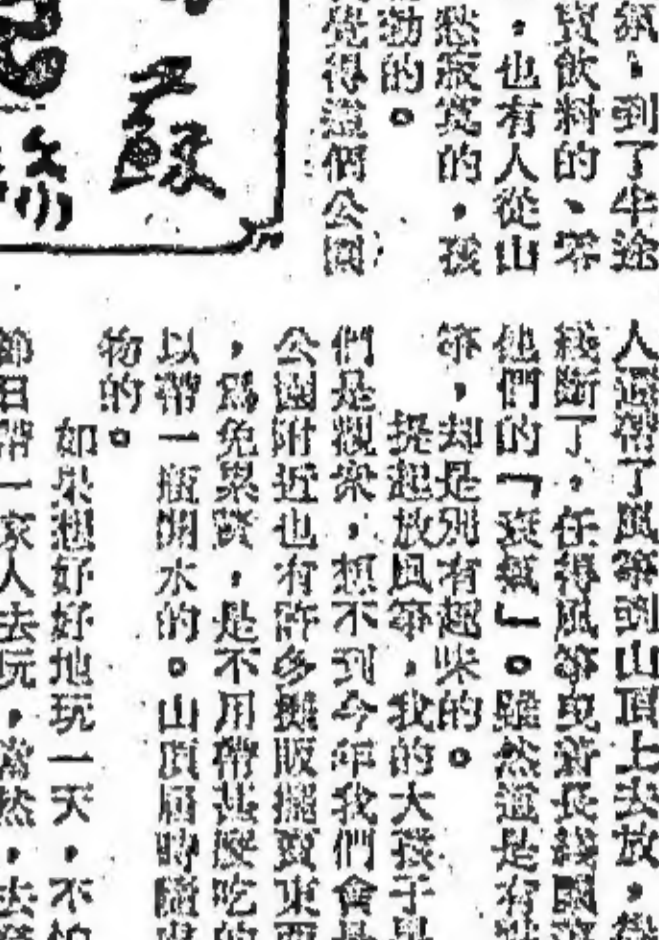 氣，到了半途
賣飲料的、零
，也有人從山
愁寂寞的，孩
勃的。
覺得這個公園
蘇
人還帶了風箏到山頂上去放，
綫斷了，任得風箏曳着長綫
他們的「衰氣」。雖然這是有
箏，却是別有趣味的。
提起放風箏，我的大孩子
們是觀衆，想不到今年我們會
公園附近也有許多攤販擺賣東西
，爲免累贅，是不用帶甚麼吃的
以帶一瓶開水的。山頂屆時
物的。
如果想好好地玩一天，不怕
節日帶一家人去玩，當然，去